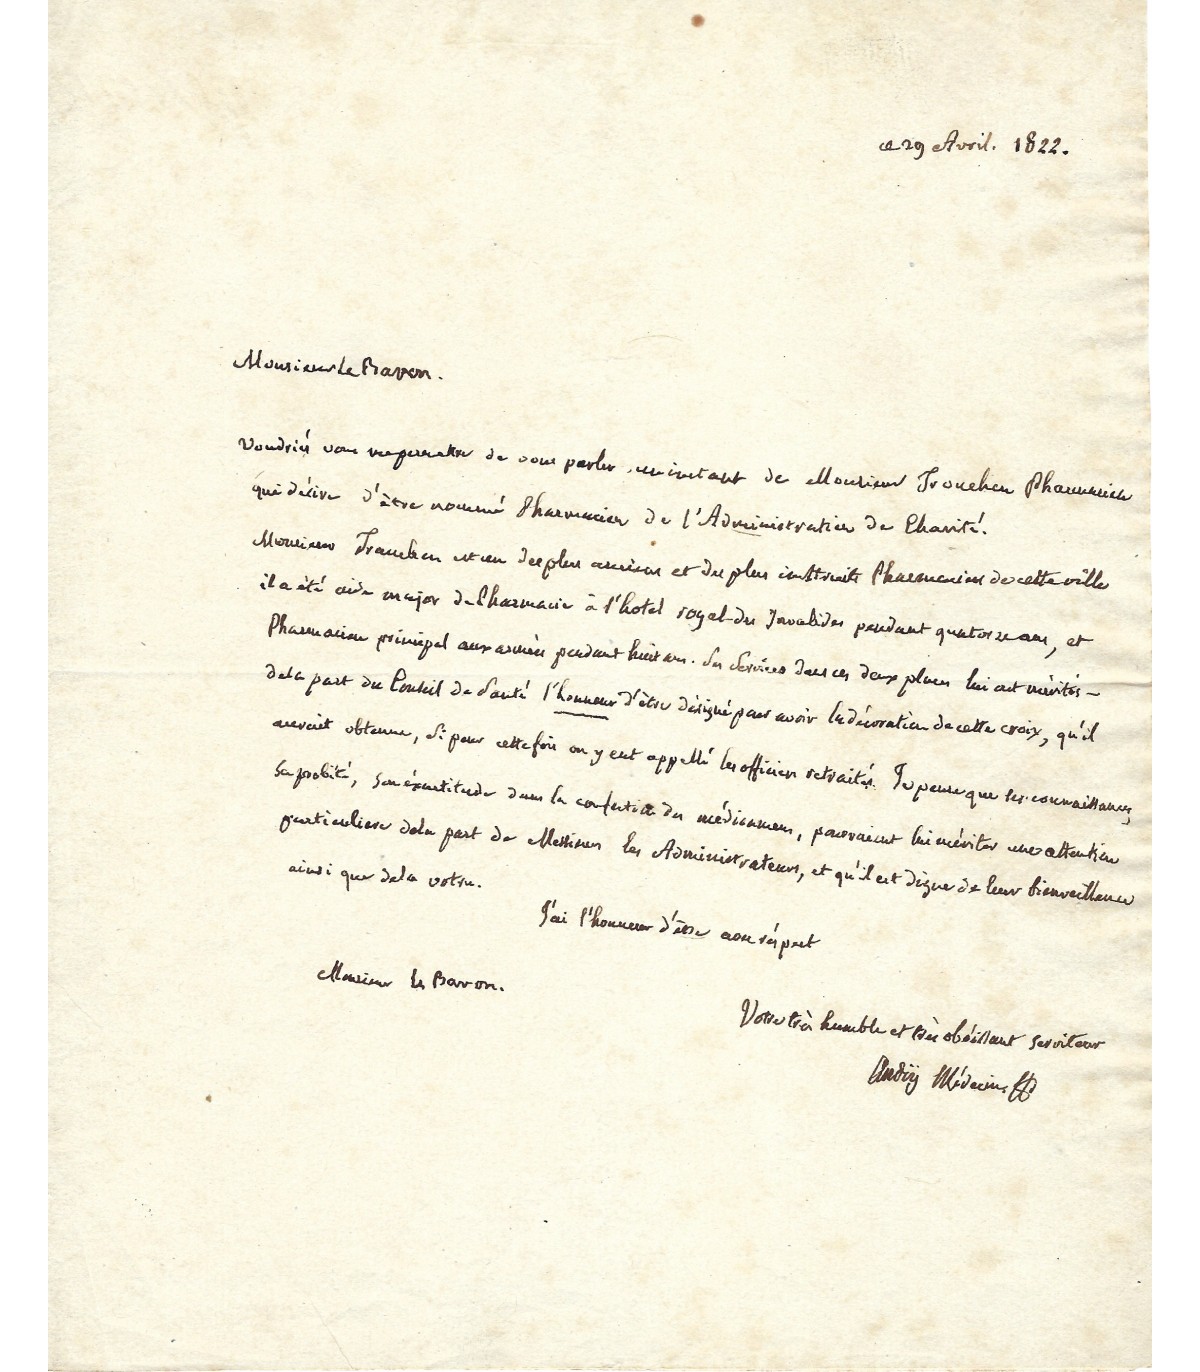 ce 29 Avril. 1822.
Monsieur le Baron.
Voudriés vous me permettre de vous parler un instant de Monsieur Pharmacien
qui désire d'être nommé Pharmacien de l'Administration de Charité.
Monsieur est un des plus anciens et des plus instruits Pharmaciens de cette ville
il a été aide major de Pharmacie à l'hotel royal des Invalides pendant quatorze ans, et
Pharmacien principal aux armées pendant huit ans. Ses Services dans ces deux places lui ont mérités –
de la part du Conseil de Santé l'honneur d'être désigné pour avoir la décoration de cette croix, qu'il
auroit obtenue, Si pour cette fois on y eut appellé les officiers retraités. Je pense que ses connaissances,
Sa probité, son éxactitude dans la confection des médicamens, pourraient lui mériter une attention
particuliere de la part de Messieurs les Administrateurs, et qu'il est digne de leur bienveillance
ainsi que de la votre.
J'ai l'honneur d'être avec réspect
Monsieur le Baron.
Votre très humble et très obéissant serviteur
Médecin